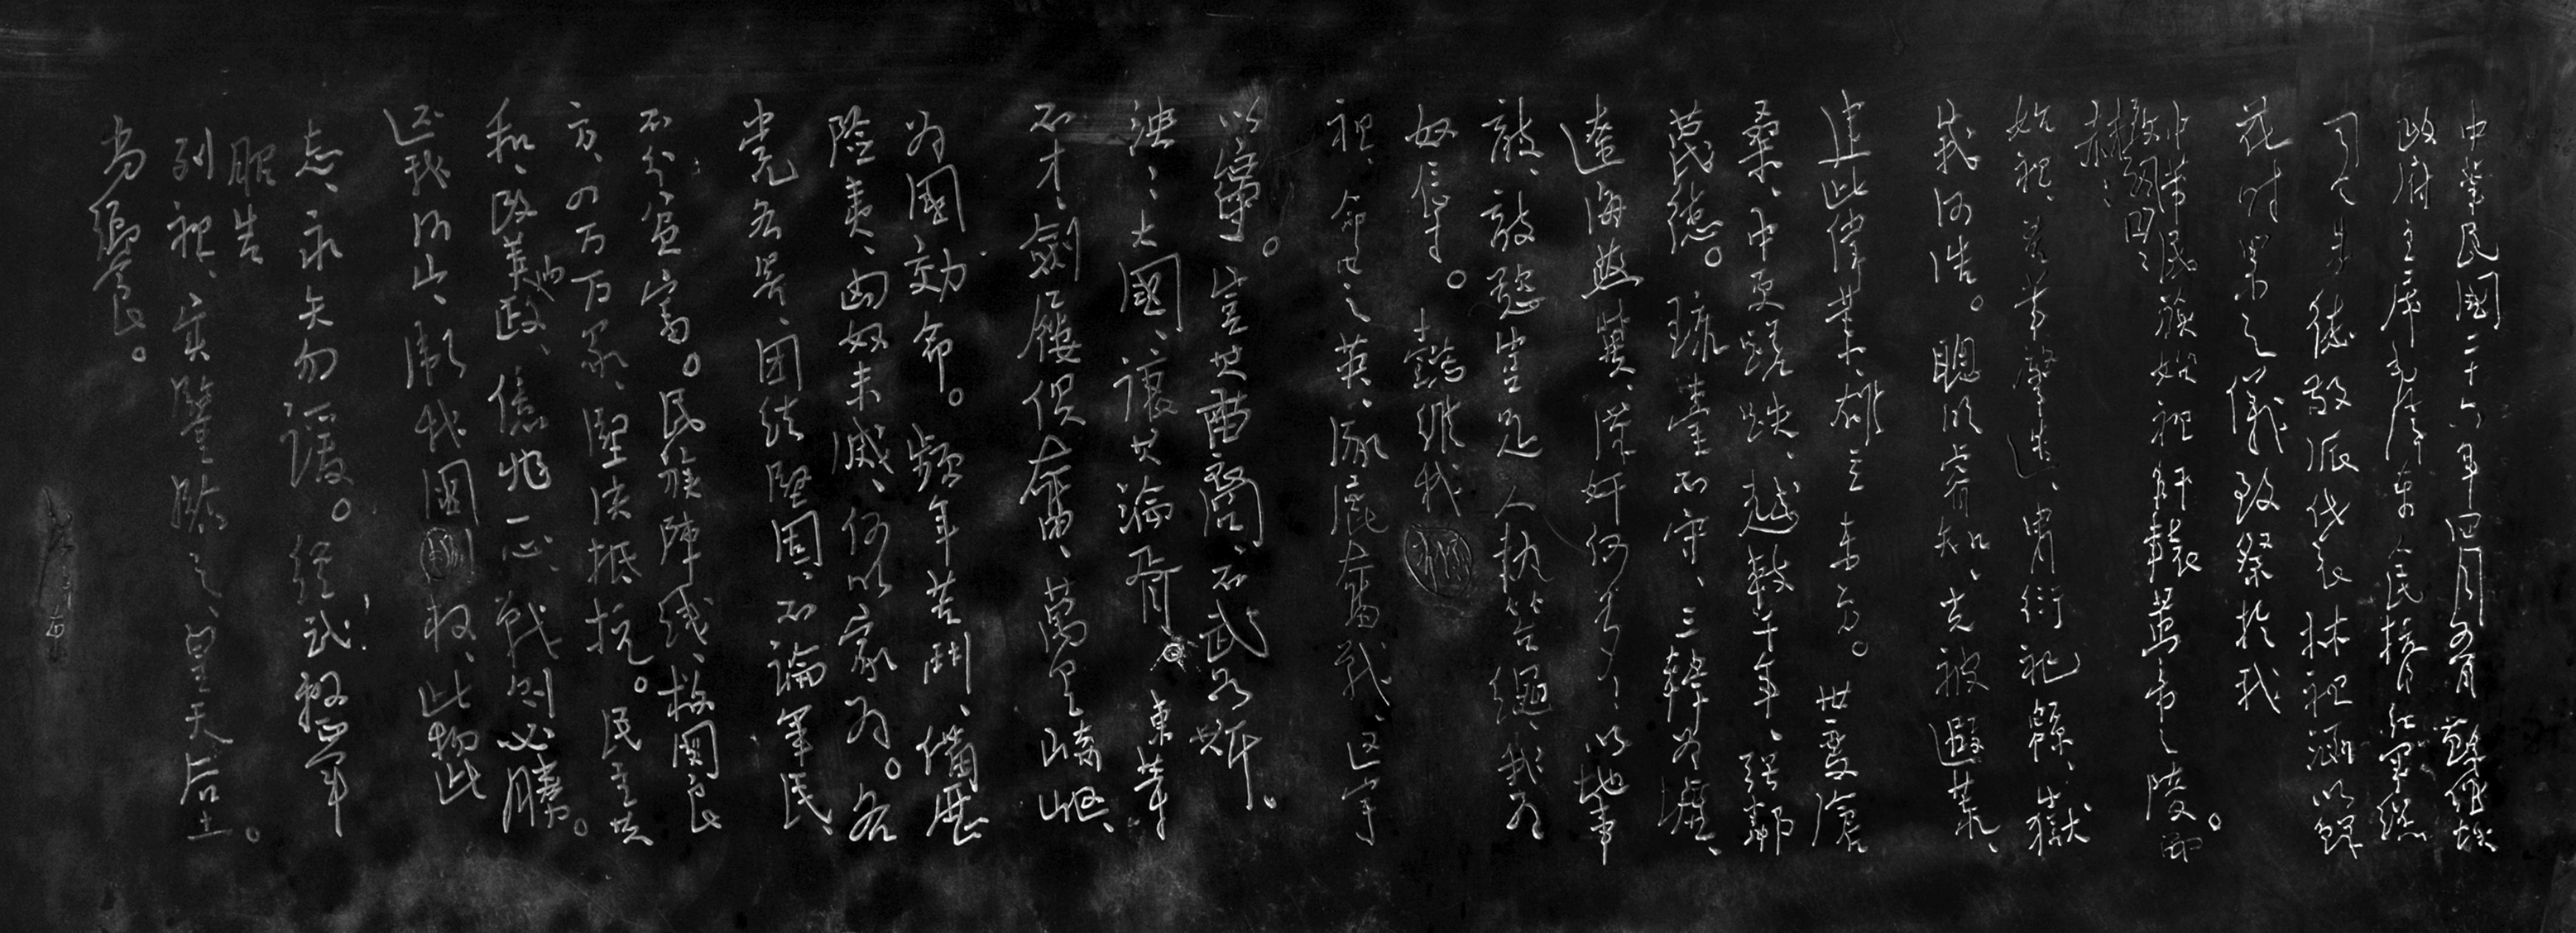 中華民國二十六年四月五日、蘇維埃
政府主席毛澤東、人民抗日紅軍總
司令朱德敬派代表林祖涵以鮮
花時果之儀致祭於我
中華民族始祖軒轅黃帝之陵。而
致詞曰：
赫：
始祖、吾華肇造、胄衍祀綿、嶽
峨河浩。聰明睿知、光被遐荒、
建此偉業、雄立東方。世變滄
桑、中更蹉跌、越數千年、强鄰
蔑德。琉臺不守、三韓为墟、
遼海燕冀、漢奸何多！以地事
敵、敵慾豈足、人執笞繩、我为
奴辱。懿維我
祖、命世之英、涿鹿奮戰、区宇
以寧。豈其苗裔、不武如斯。
泱：大國、讓其淪胥 東等
不才、劍屨俱奮、萬里崎嶇、
为國効命。頻年苦鬥、備歷
險夷、匈奴未滅、何以家为。各
党各界、团结堅固、不論軍民、
不分貧富。民族陣线、救國良
方、四万万衆、堅决抵抗。民主共
和、改革内政、億兆一心、戰则必勝。
还我河山、衛我國权、此物此
志、永矢勿諼。經武整軍
昭告
列祖、实鑒臨之、皇天后土。
尚饗。